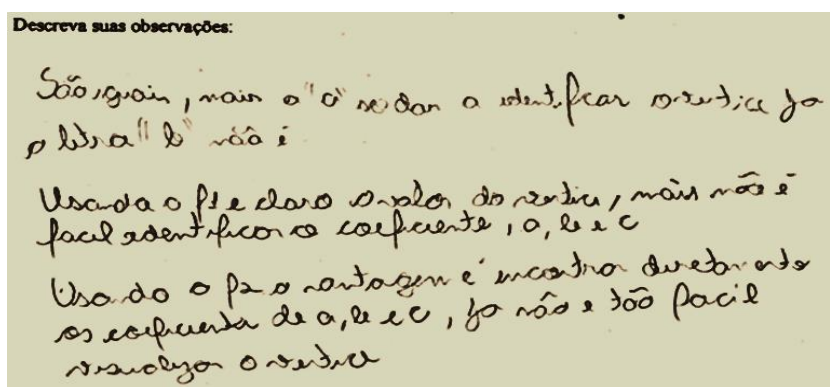 Descreva suas observações:
São iguais, mais o "a" se dar a identificar o vertice ja
a letra "b" não é
Usando o f1 e claro o valor do vertice, mais não é
facil identificar o coeficiente, a, b e c
Usando o f2 a vantagem é incontra diretamente
os coeficienta de a, b e c, ja não e tão facil
visualizar o vertice